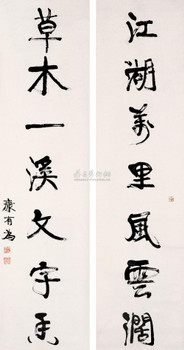 江湖万里風雲濶
草木一溪文字香
康有為